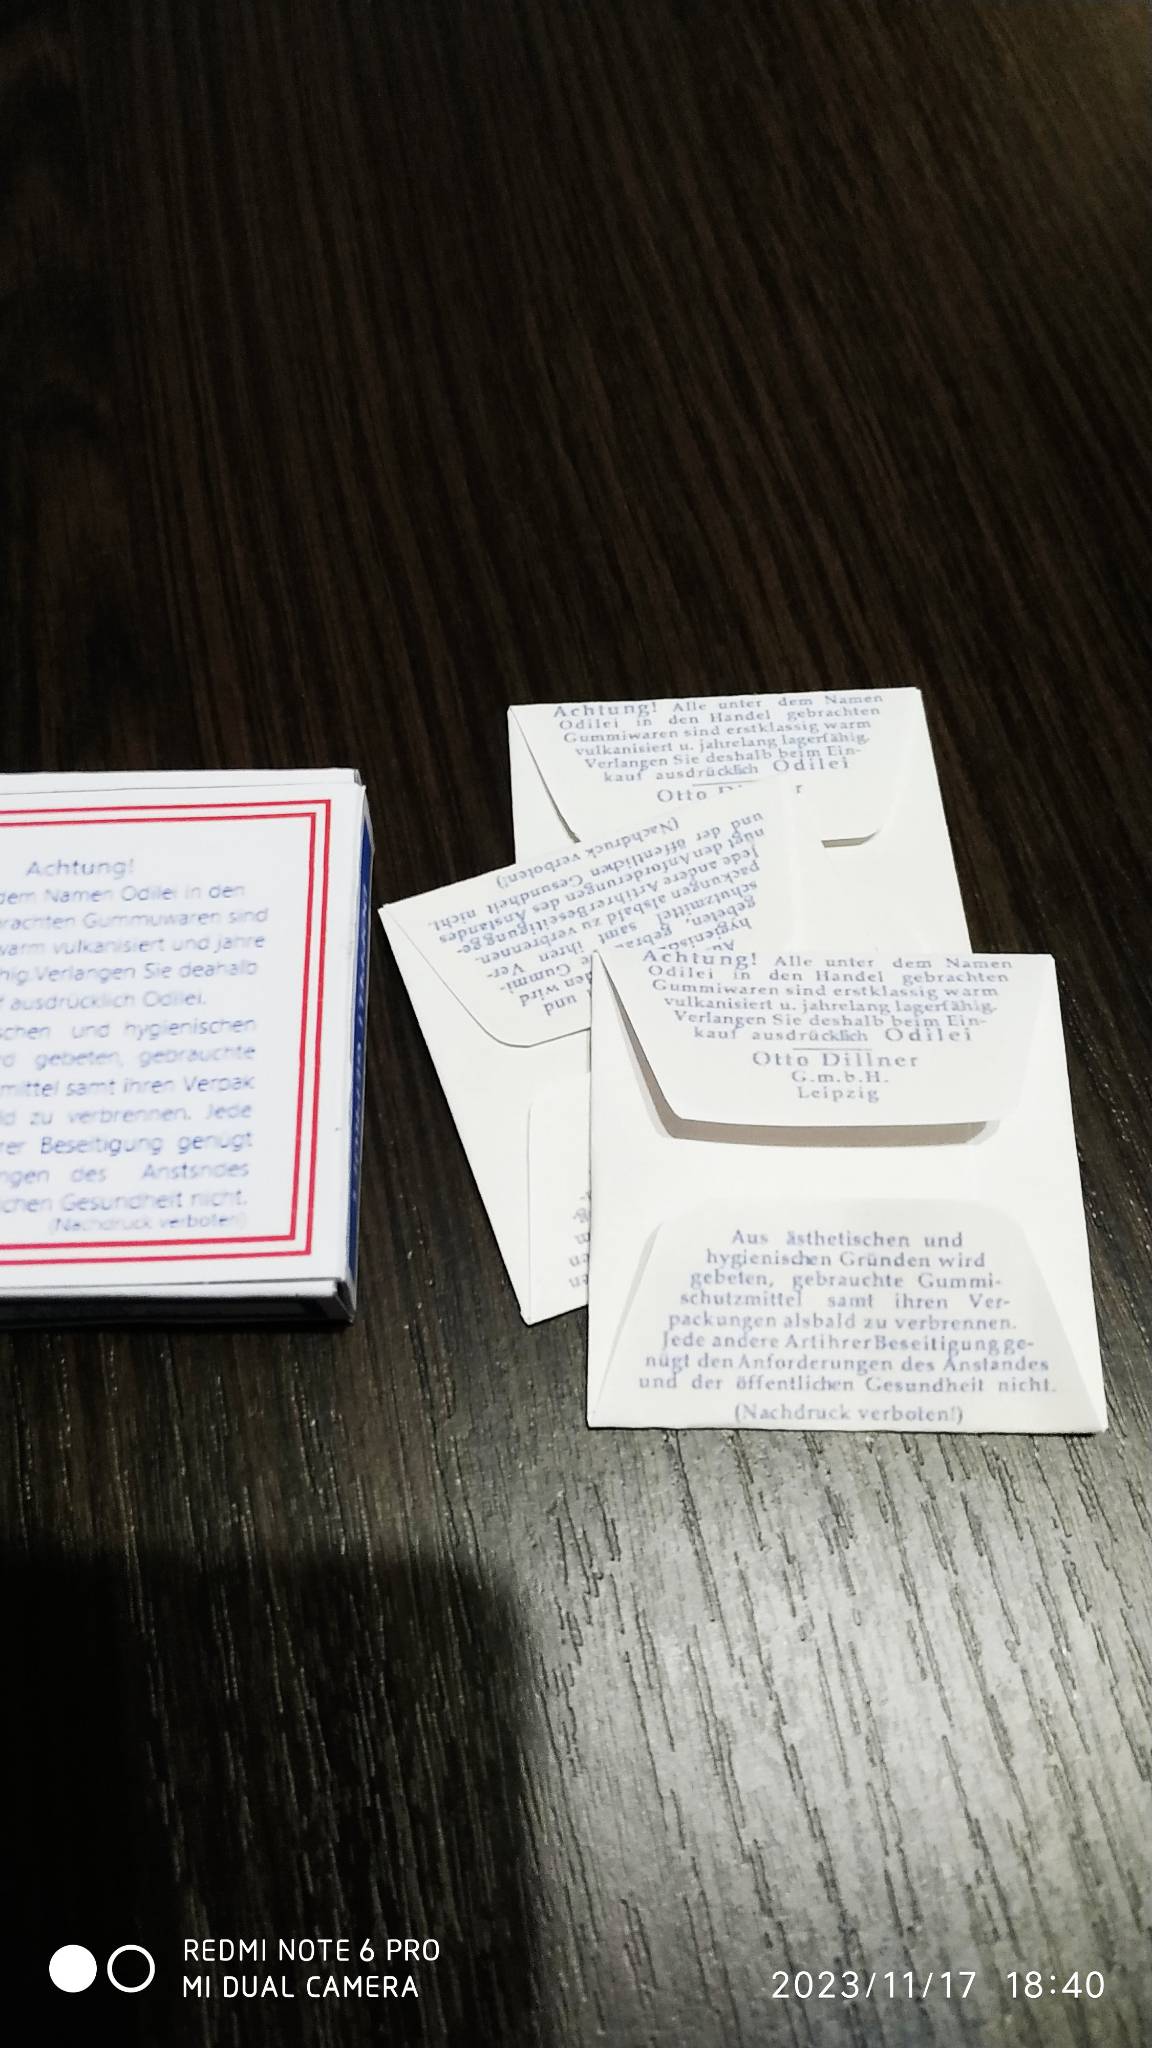 Achtung!
dem Namen Odilei in den
brachten Gummuwaren sind
warm vulkanisiert und jahre
hig.Verlangen Sie deahalb
f ausdrücklich Odilei.
schen und hygienischen
rd gebeten, gebrauchte
mittel samt ihren Verpak
ld zu verbrennen. Jede
rer Beseitigung genügt
ngen des Anstsndes
ichen Gesundheit nicht.
(Nachdruck verboten!)
Achtung! Alle unter dem Namen
Odilei in den Handel gebrachten
Gummiwaren sind erstklassig warm
vulkanisiert u. jahrelang lagerfähig.
Verlangen Sie deshalb beim Ein-
kauf ausdrücklich Odilei
Otto
hygienis
gebeten, gebrau
schutzmittel samt ihren Ver-
packungen alsbald zu verbrennen.
Jede andere ArtihrerBeseitigungge-
nügt denAnforderungen des Anstandes
und der öffentlichen Gesundheit nicht.
(Nachdruck verboten!)
Achtung! Alle unter dem Namen
Odilei in den Handel gebrachten
Gummiwaren sind erstklassig warm
vulkanisiert u. jahrelang lagerfähig.
Verlangen Sie deshalb beim Ein-
kauf ausdrücklich Odilei
Otto Dillner
G.m.b.H.
Leipzig
Aus ästhetischen und
hygienischen Gründen wird
gebeten, gebrauchte Gummi-
schutzmittel samt ihren Ver-
packungen alsbald zu verbrennen.
Jede andere ArtihrerBeseitigungge-
nügt denAnforderungen des Anstandes
und der öffentlichen Gesundheit nicht.
(Nachdruck verboten!)
REDMI NOTE 6 PRO
MI DUAL CAMERA
2023/11/17 18:40